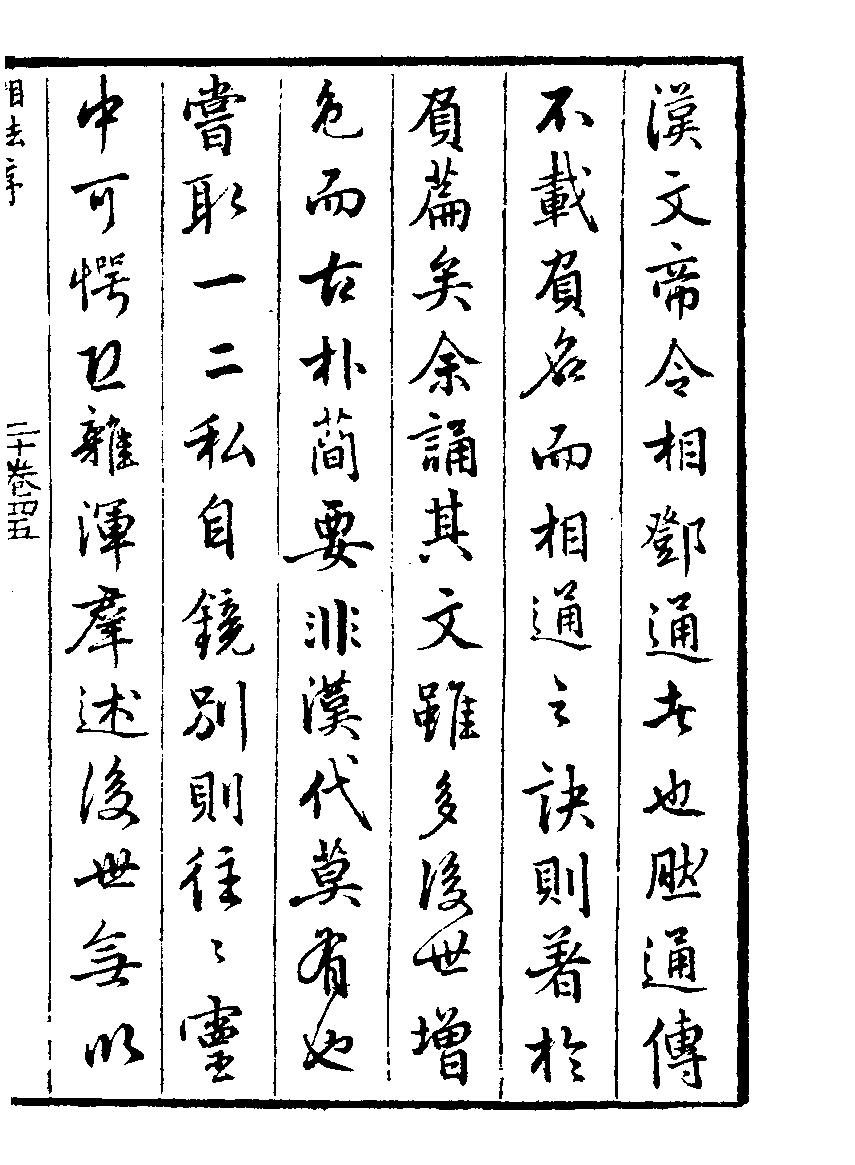 漢文帝令相鄧通者也然通傳
不載負名而相通之訣則著於
負篇矣余誦其文雖多後世增
色而古朴蕳要非漢代莫有也
嘗取一二私自鏡別則往〻靈
中可愕雜渾羣述後世無以
相法序
二十卷四五